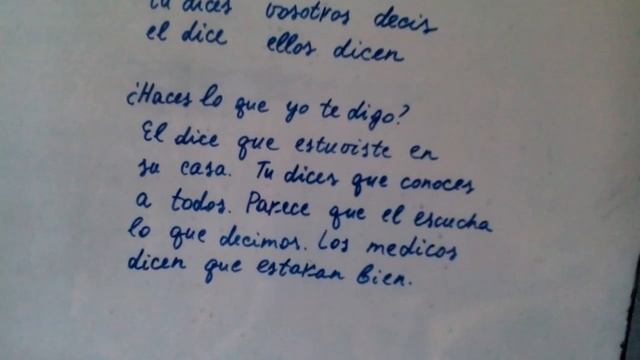 tu dices vosotros decis
el dice ellos dicen
¿Haces lo que yo te digo?
El dice que estuviste en
su casa. Tu dices que conoces
a todos. Parece que el escucha
lo que decimos. Los medicos
dicen que estaran bien.